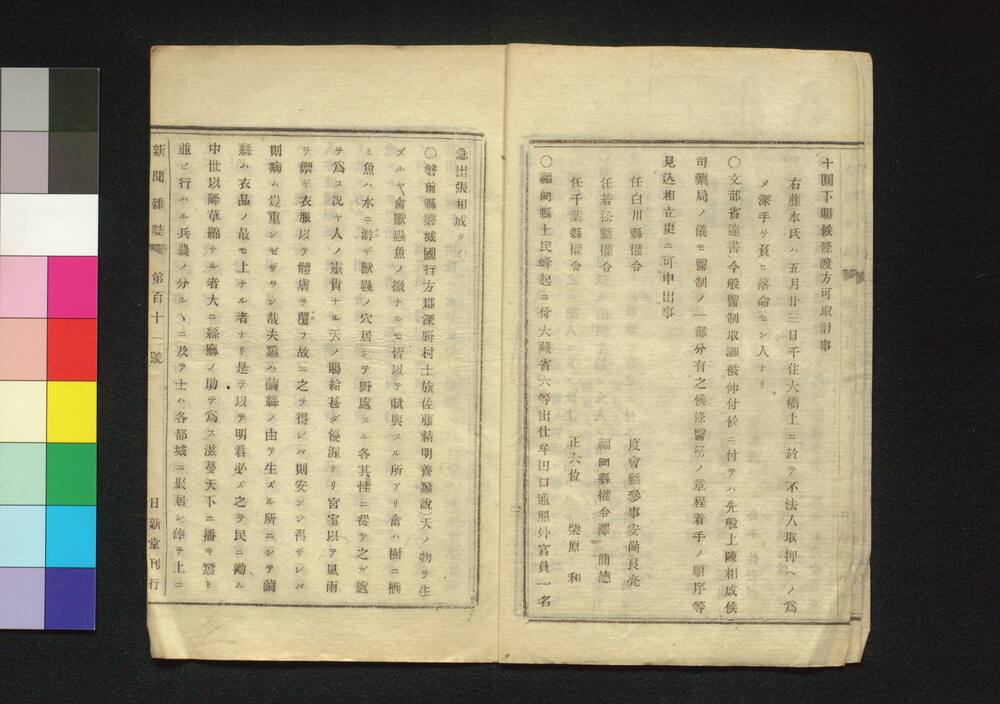 十圓下賜候條渡方可取計事
右藤本氏ハ五月廿三日千住大橋上ニ於テ不法人取押ヘノ爲
メ深手ヲ負ヒ落命セシ人ナリ
〇文部省達書今般醫制取調被仰付候ニ付テハ先般上陳相成候
司藥局ノ儀モ醫制ノ一部分有之候條醫務ノ章程着手ノ順序等
見込相立更ニ可申出事
任白川縣權令 度會縣參事安岡良亮
任若松縣權令 福岡縣權令澤 簡德
任千葉縣權令 正六位 柴原 和
〇福岡縣土民蜂起ニ付大藏省六等出仕牟田口通照外官員一名
急出張相成タリ
〇磐前縣磐城國行方郡深野村士族佐藤精明養蠶說)天ノ物ヲ生
ズルヤ禽獸蟲魚ノ微ナルモ皆以テ賦與スル所アリ禽ハ樹ニ栖
ミ魚ハ水ニ游ギ獸蟲ノ穴居シテ野處スル各其性ニ從テ之ガ處
ヲ爲ス况ヤ人ノ靈貴ナル天ノ賜給甚ダ優渥ナリ宮室以テ風雨
ヲ禦ギ衣服以テ體膚ヲ覆フ故ニ之ヲ得レバ則安ンジ得ザレバ
則病ム豈重ンゼザラン哉夫蠶ハ繭絲ノ由テ生ズル所ニシテ繭
絲ハ衣品ノ最モ上ナル者ナリ是ヲ以テ明君必ズ之ヲ民ニ勸ム
中世以降草緜ナル者大ニ絲麻ノ助ヲ爲ス滋蔓天下ニ播キ蠶ト
並ビ行ハル兵農ノ分ルヽニ及テ士ハ各都城ニ聚居シ俸ヲ上ニ
新聞雜誌 第百十二號 日新堂刊行